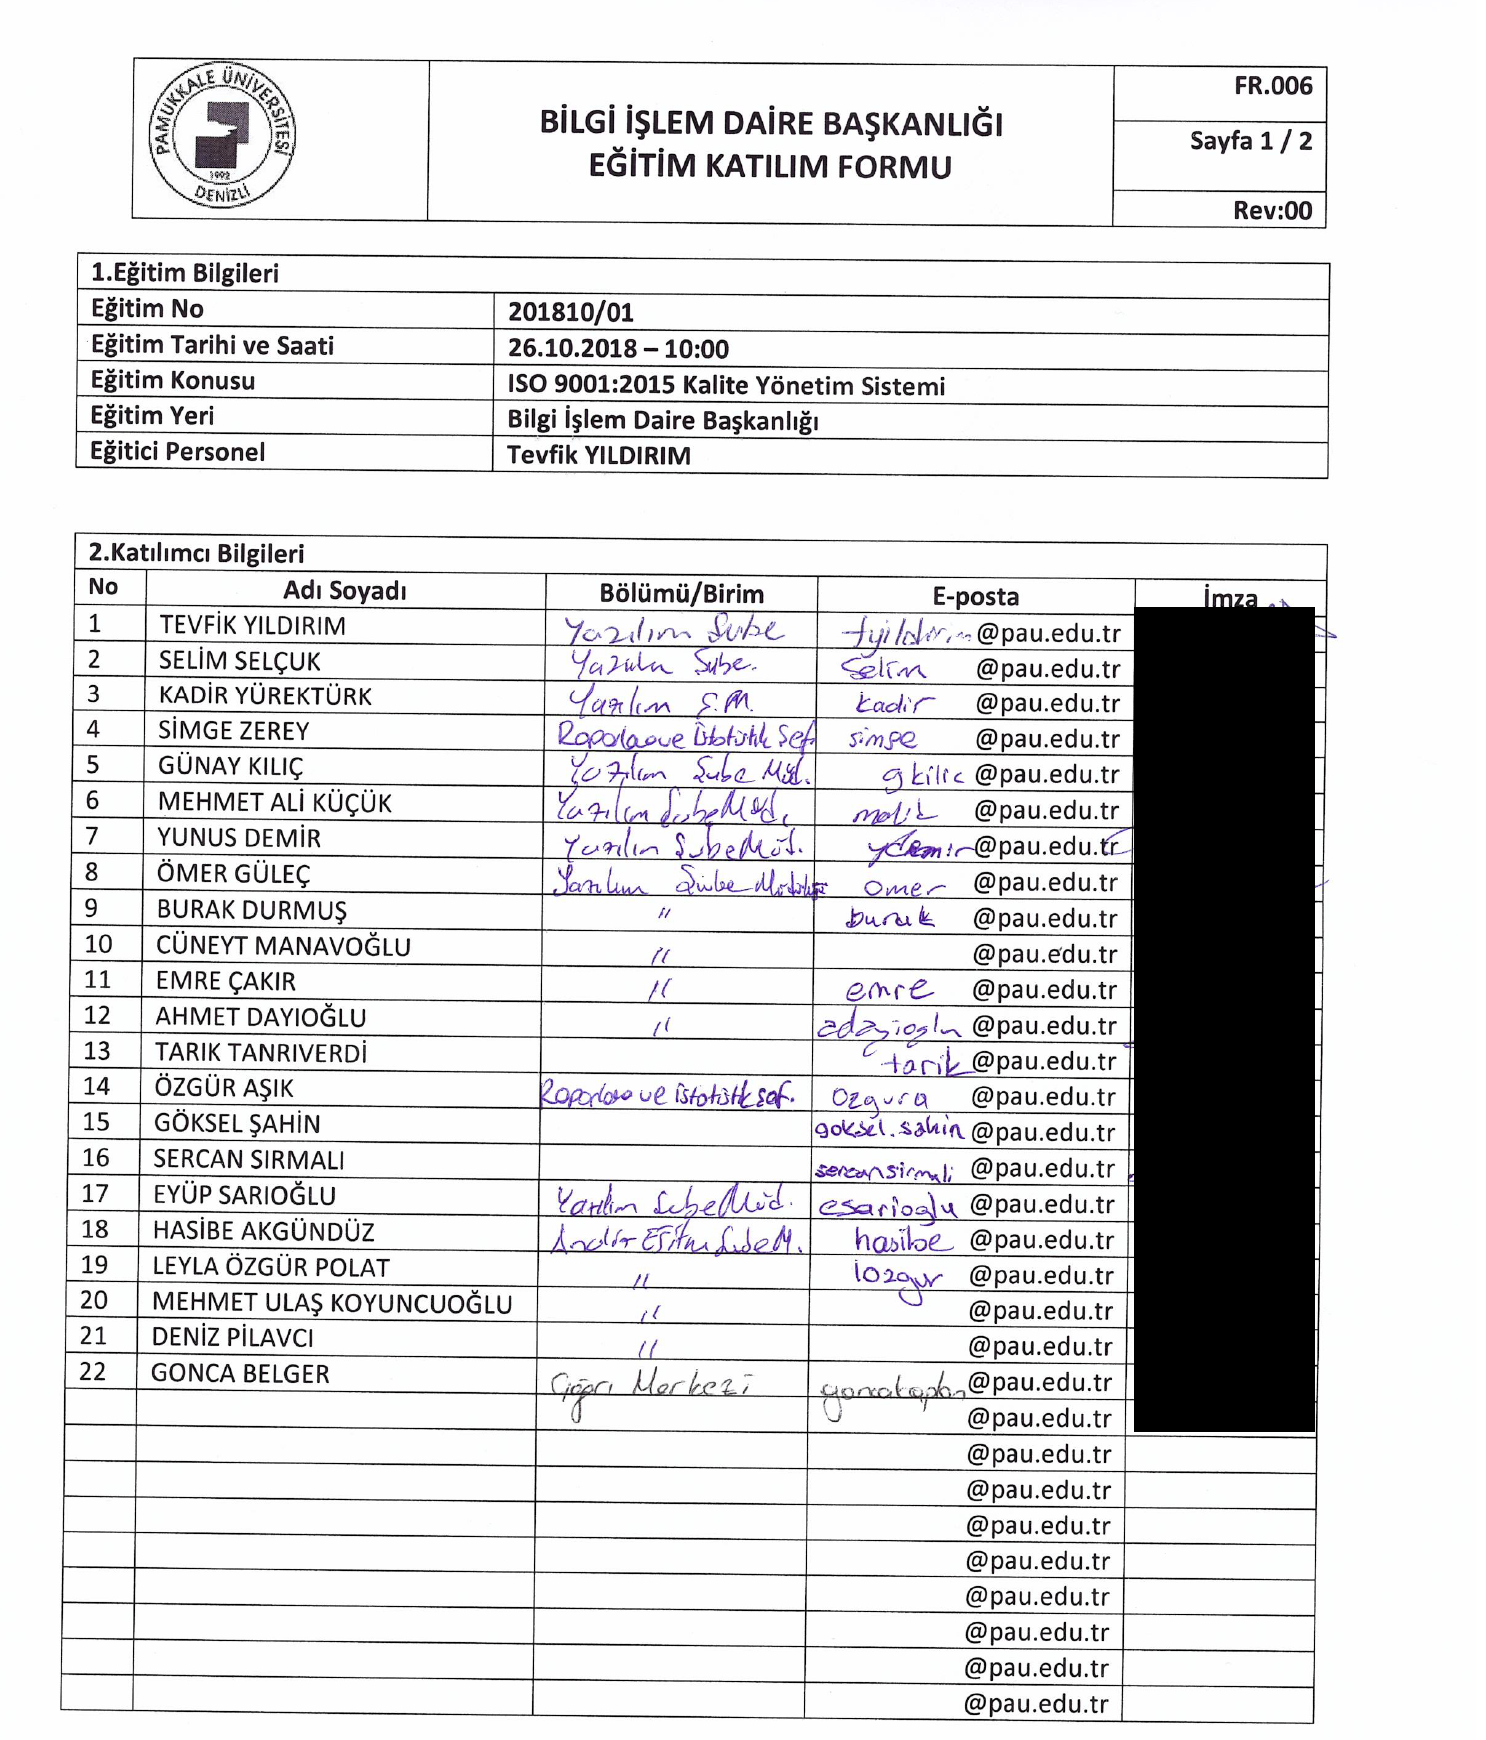 PAMUKKALE ÜNİVERSİTESİ
1992
DENİZLİ
BİLGİ İŞLEM DAİRE BAŞKANLIĞI
EĞİTİM KATILIM FORMU
FR.006
Sayfa 1 / 2
Rev:00
1.Eğitim Bilgileri
Eğitim No 201810/01
Eğitim Tarihi ve Saati 26.10.2018 – 10:00
Eğitim Konusu ISO 9001:2015 Kalite Yönetim Sistemi
Eğitim Yeri Bilgi İşlem Daire Başkanlığı
Eğitici Personel Tevfik YILDIRIM
2.Katılımcı Bilgileri
No Adı Soyadı Bölümü/Birim E-posta İmza
1 TEVFİK YILDIRIM Yazılım Şube tyildirim @pau.edu.tr
2 SELİM SELÇUK Yazılım Şube. selim @pau.edu.tr
3 KADİR YÜREKTÜRK Yazılım Ş.M. kadir @pau.edu.tr
4 SİMGE ZEREY Raporlama ve İstatistik Şef. simge @pau.edu.tr
5 GÜNAY KILIÇ Yazılım Şube Müd. gkilic @pau.edu.tr
6 MEHMET ALİ KÜÇÜK Yazılım Şube Müd. malik @pau.edu.tr
7 YUNUS DEMİR Yazılım Şube Müd. ydemir @pau.edu.tr
8 ÖMER GÜLEÇ Yazılım Şube Müdürlüğü omer @pau.edu.tr
9 BURAK DURMUŞ " burak @pau.edu.tr
10 CÜNEYT MANAVOĞLU " @pau.edu.tr
11 EMRE ÇAKIR " emre @pau.edu.tr
12 AHMET DAYIOĞLU " adayioglu @pau.edu.tr
13 TARIK TANRIVERDİ tarik @pau.edu.tr
14 ÖZGÜR AŞIK Raporlama ve istatistik şef. ozgura @pau.edu.tr
15 GÖKSEL ŞAHİN goksel.sahin @pau.edu.tr
16 SERCAN SIRMALI sercansirmali @pau.edu.tr
17 EYÜP SARIOĞLU Yazılım Şube Müd. esarioglu @pau.edu.tr
18 HASİBE AKGÜNDÜZ Eğitim Şube M. hasibe @pau.edu.tr
19 LEYLA ÖZGÜR POLAT " lozgur @pau.edu.tr
20 MEHMET ULAŞ KOYUNCUOĞLU " @pau.edu.tr
21 DENİZ PİLAVCI " @pau.edu.tr
22 GONCA BELGER Çağrı Merkezi goncakaplan @pau.edu.tr
@pau.edu.tr
@pau.edu.tr
@pau.edu.tr
@pau.edu.tr
@pau.edu.tr
@pau.edu.tr
@pau.edu.tr
@pau.edu.tr
@pau.edu.tr